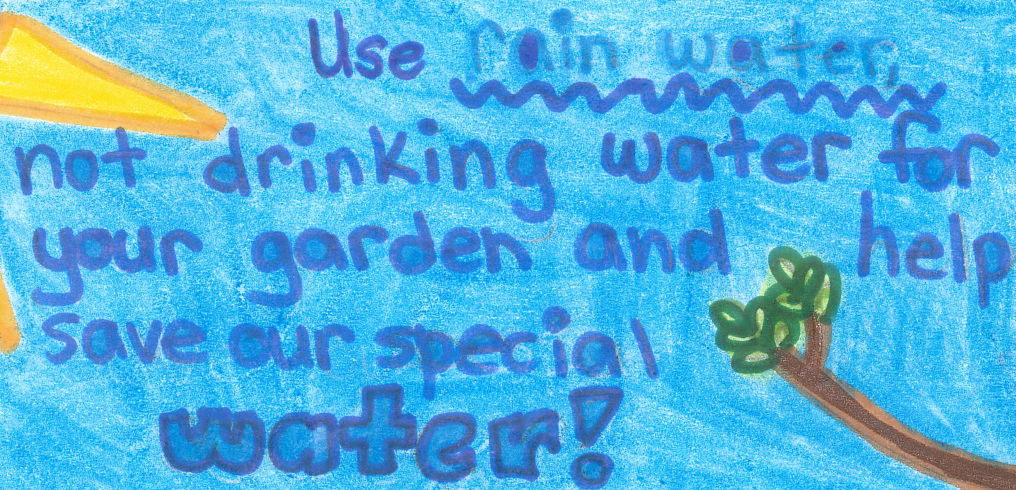 Use rain water,
not drinking water for
your garden and help
save our special
water!